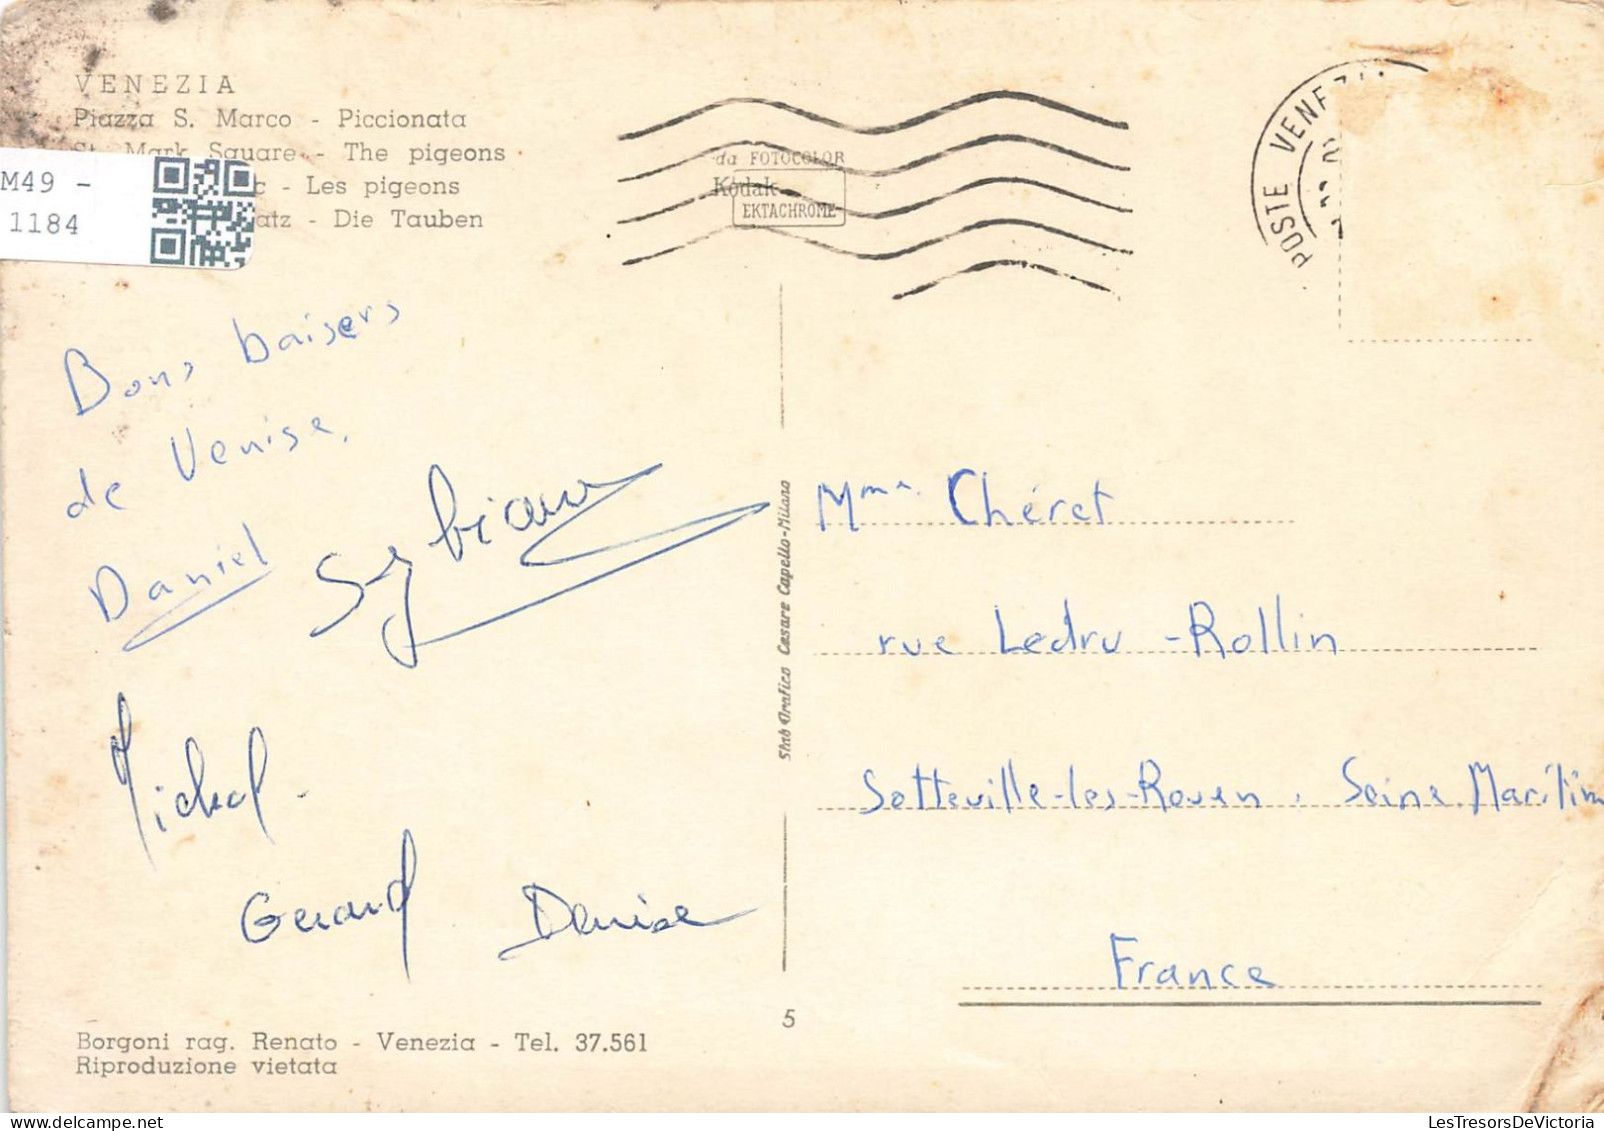 VENEZIA
Piazza S. Marco - Piccionata
St. Mark Square - The pigeons
c - Les pigeons
atz - Die Tauben
M49 -
1184
da FOTOCOLOR
Kodak
EKTACHROME
POSTE VENEZIA
Bons baisers
de Venise.
Daniel
Michel.
Gérard Denise
Stab Grafico Cesare Capello-Milano
Mme. Chéret
rue Ledru-Rollin
Sotteville-les-Rouen. Seine Maritim
France
5
Borgoni rag. Renato - Venezia - Tel. 37.561
Riproduzione vietata
LesTresorsDeVictoria